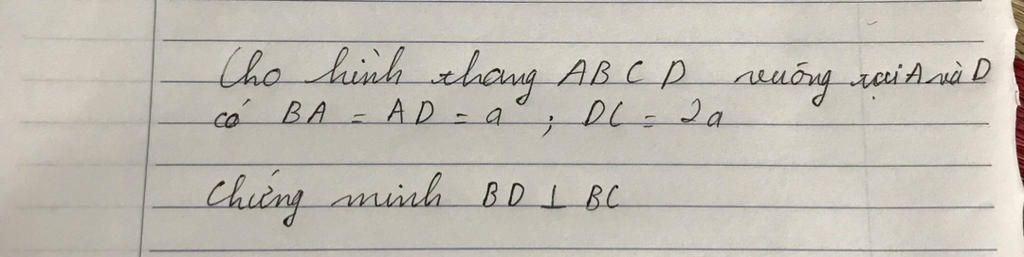 Cho hình thang ABCD vuông tại A và D
có BA = AD = a ; DC = 2a
Chứng minh BD ⊥ BC